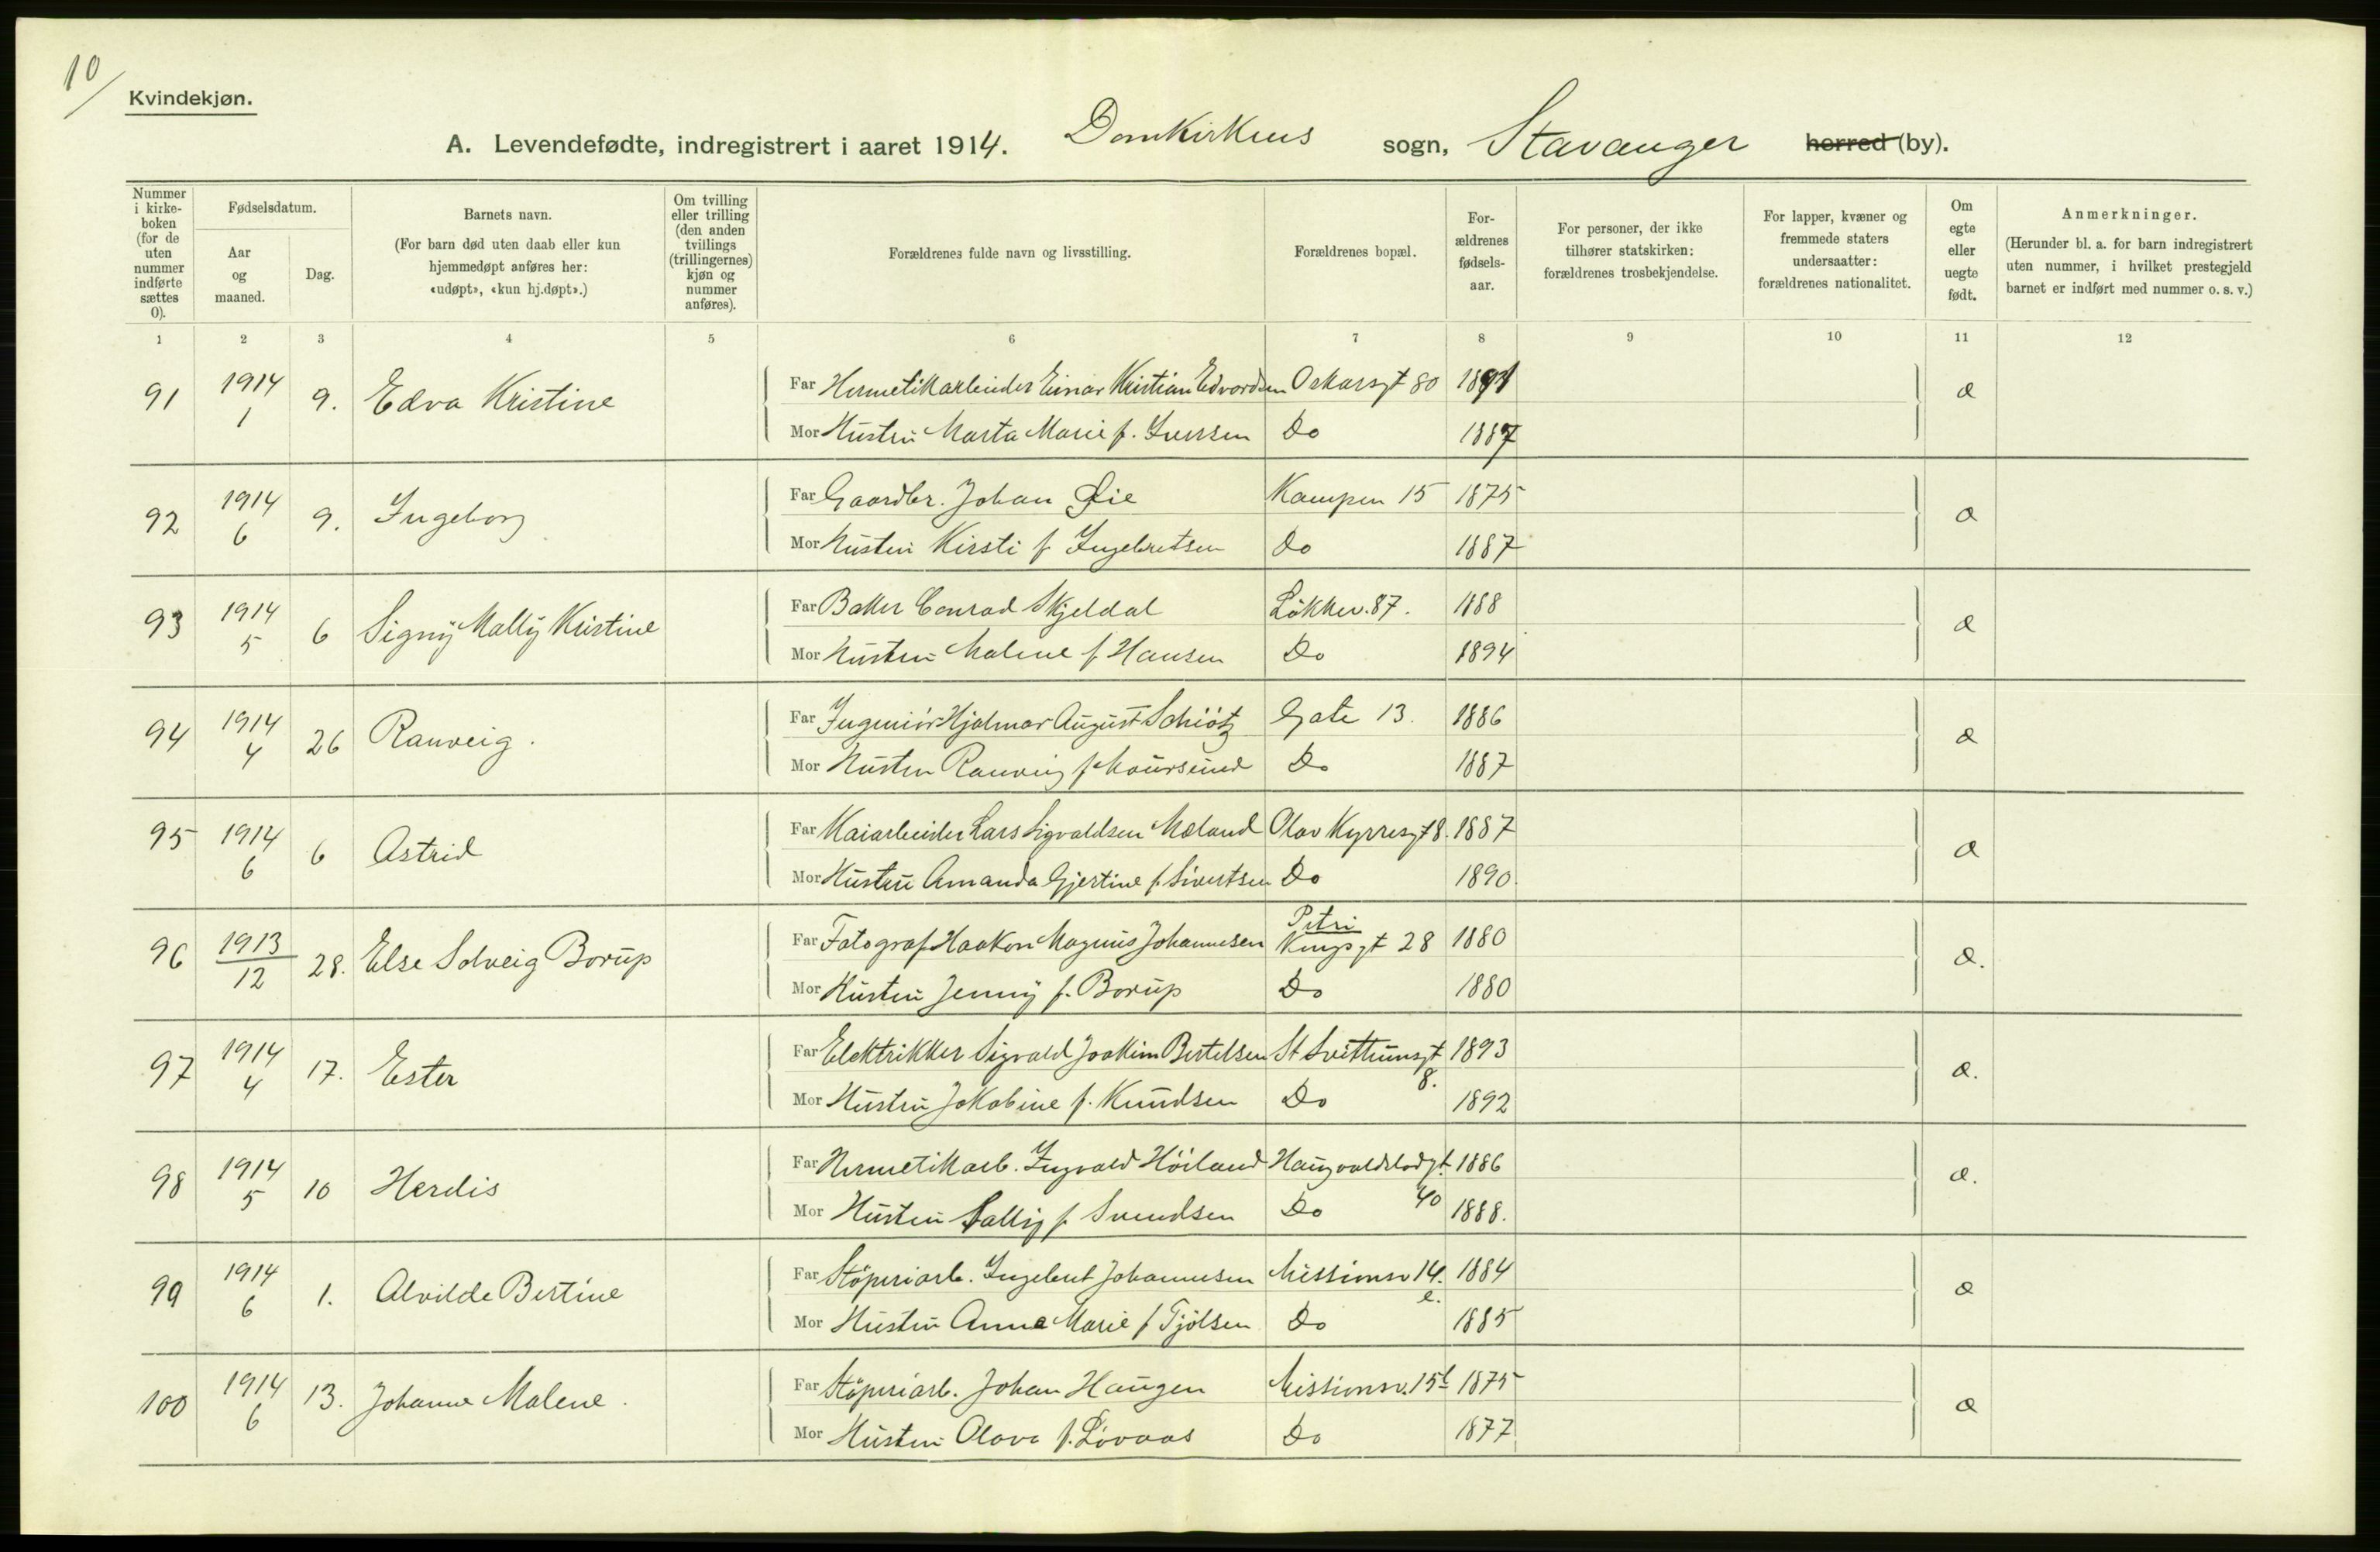 10
Kvindekjøn.
A. Levendefødte, indregistrert i aaret 1914. Domkirkens sogn, Stavanger herred (by).
Nummer i kirke-boken (for de uten nummer indførte sættes 0).
Fødselsdatum.
Aar og maaned.
Dag.
Barnets navn. (For barn død uten daab eller kun hjemmedøpt anføres her: «udøpt», «kun hj.døpt».)
Om tvilling eller trilling (den anden tvillings (trillingernes) kjøn og nummer anføres).
Forældrenes fulde navn og livsstilling.
Forældrenes bopæl.
For-ældrenes fødsels-aar.
For personer, der ikke tilhører statskirken: forældrenes trosbekjendelse.
For lapper, kvæner og fremmede staters undersaatter: forældrenes nationalitet.
Om egte eller uegte født.
Anmerkninger. (Herunder bl. a. for barn indregistrert uten nummer, i hvilket prestegjeld barnet er indført med nummer o. s. v.)
1 2 3 4 5 6 7 8 9 10 11 12
91 1914 1 9. Edva Kristine
Far Hermetikarbeider Einar Kristian Edvardsen Oskarsgt 80 1891 æ
Mor Hustru Marta Marie f. Iversen Do 1887
92 1914 6 9. Ingeborg
Far Gaardbr. Johan Øie Kampen 15 1875 æ
Mor Hustru Kirsti f Ingebretsen Do 1887
93 1914 5 6 Signy Mally Kristine
Far Baker Conrad Skjeldal Løkkev. 87. 1888 æ
Mor Hustru Malene f Hansen Do 1894
94 1914 4 26 Ranveig.
Far Ingeniør Hjalmar August Schiøtz Gate 13. 1886 æ
Mor Hustru Ranveig f Moursund Do 1887
95 1914 6 6 Astrid
Far Kaiarbeider Lars Sigvaldsen Mæland Olav Kyrresgt 8. 1887 æ
Mor Hustru Amanda Gjertine f. Sivertsen Do 1890.
96 1913 12 28. Else Solveig Borup
Far Fotograf Haakon Magnus Johannesen Petri Kingsgt 28 1880 æ.
Mor Hustru Jenny f. Borup Do 1880
97 1914 4 17. Ester
Far Elektrikker Sigvald Joakim Bertelsen St Svithunsgt 8. 1893 æ.
Mor Hustru Jakobine f. Knudsen Do 1892
98 1914 5 10 Herdis
Far Hermetikarb. Ingvald Høiland Haugvaldstadgt. 40 1886 æ.
Mor Hustru Sally f Svendsen Do 1888.
99 1914 6 1. Alvilde Bertine
Far Støperiarb. Ingebret Johannesen Missionsv 14. e. 1884 æ
Mor Hustru Anna Marie f Tjølsen Do 1885
100 1914 6 13. Johanne Malene.
Far Støperiarb. Johan Haugen Missionsv. 15b 1875 æ
Mor Hustru Olava f. Løvaas Do 1877